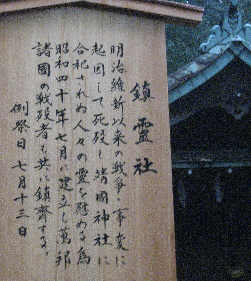 鎮霊社
明治維新以来の戦争・事変に
起因して死歿し靖國神社に
合祀されぬ人々の霊を慰める為
昭和四十年七月に建立し萬邦
諸國の戦歿者も共に鎮斎する。
例祭日 七月十三日